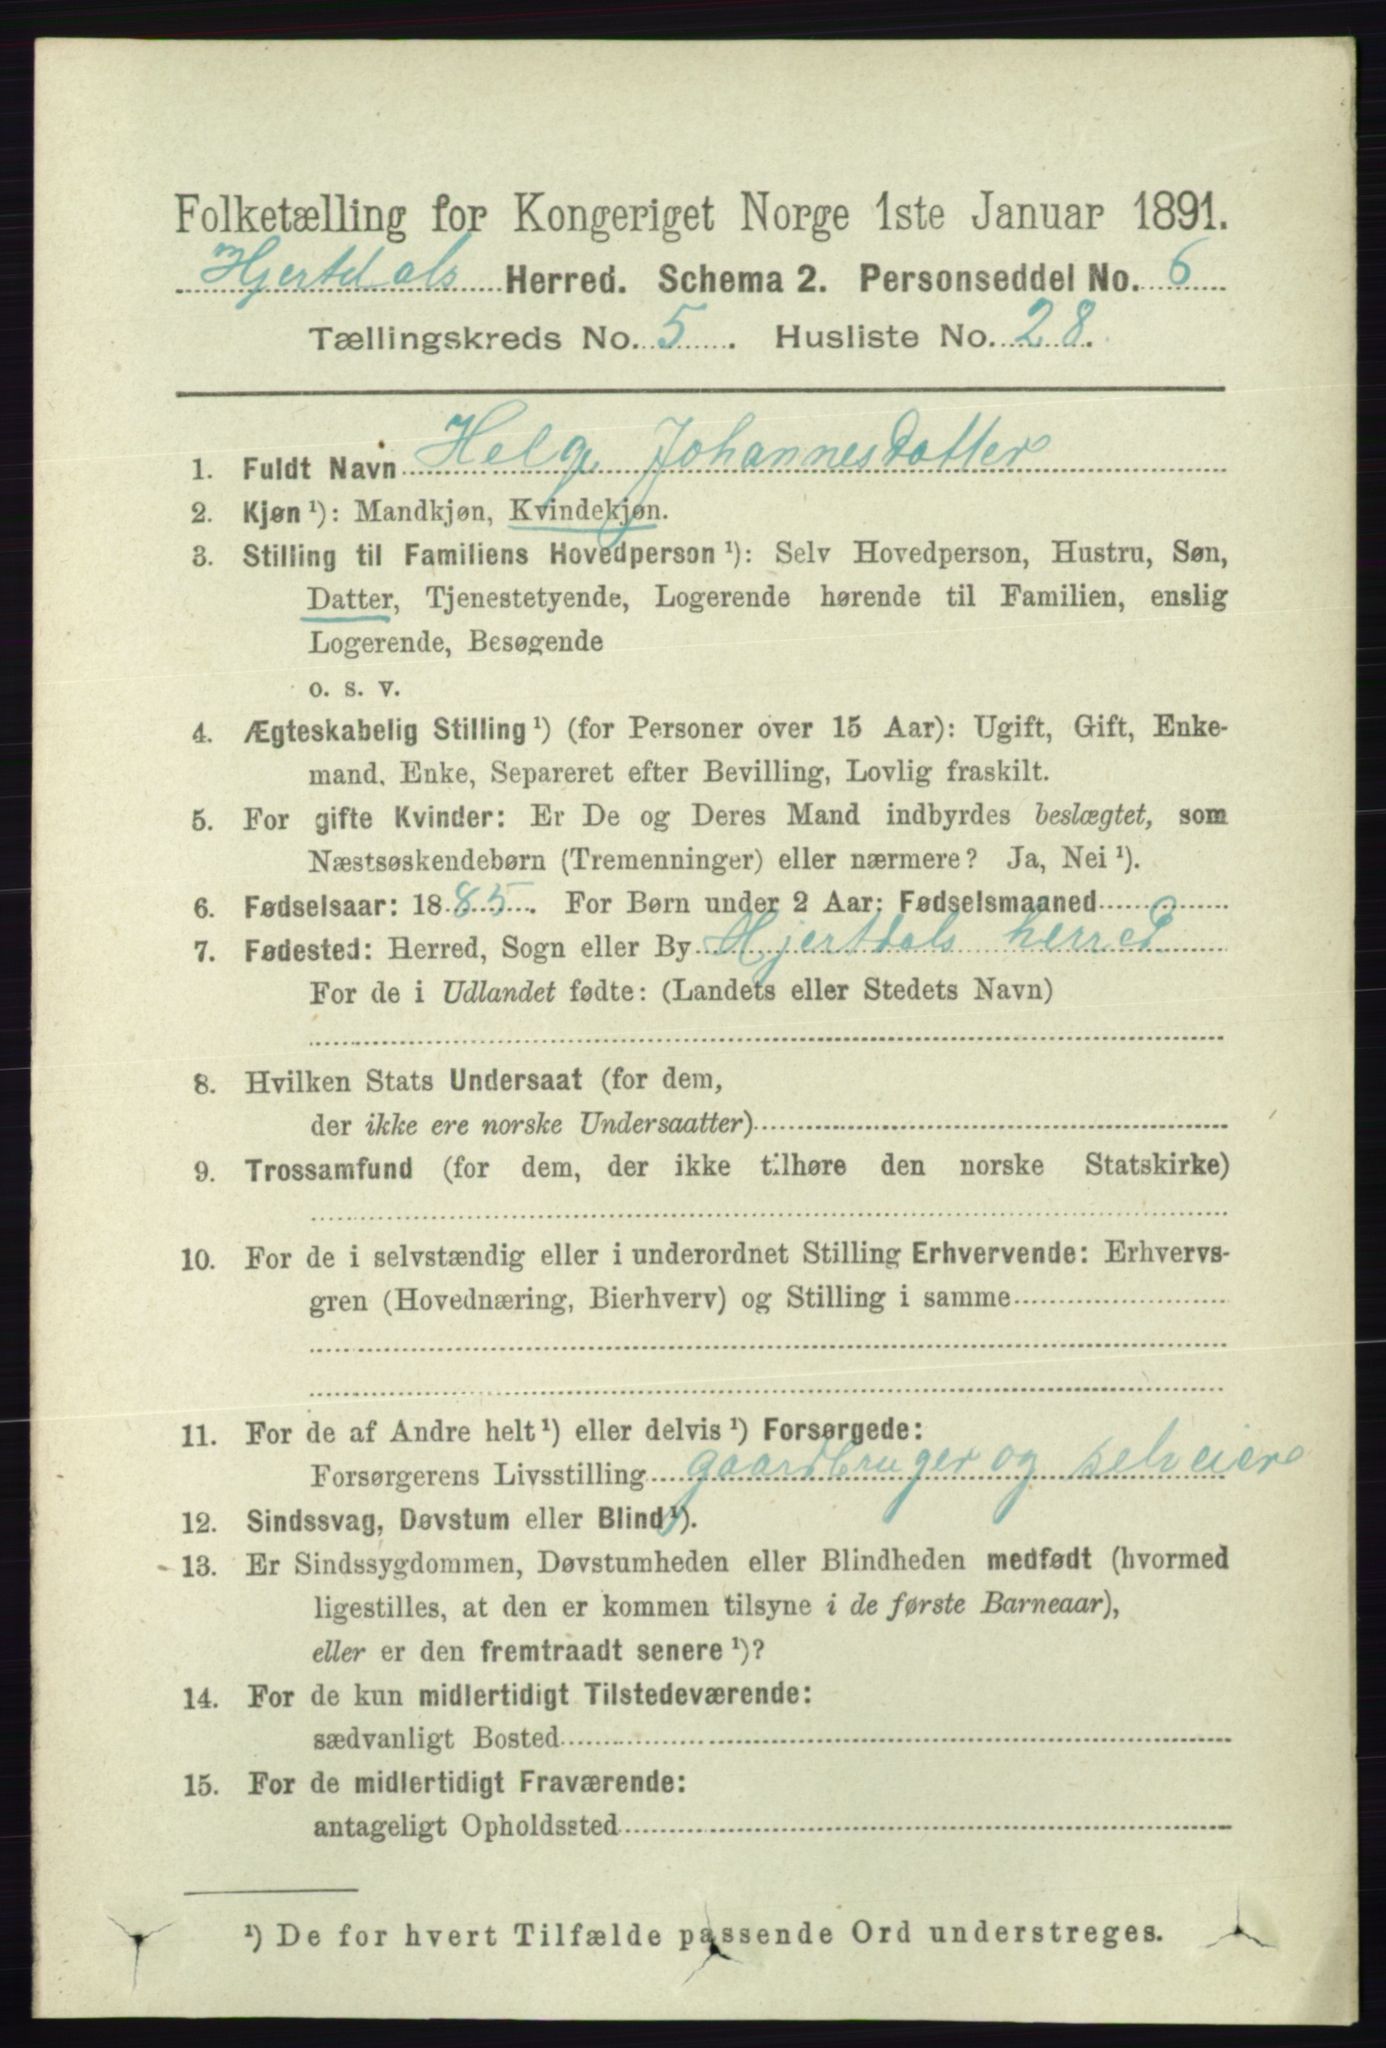 Folketælling for Kongeriget Norge 1ste Januar 1891.
Hjertdals Herred. Schema 2. Personseddel No. 6
Tællingskreds No. 5. Husliste No. 28.
1. Fuldt Navn Helge Johannesdatter
2. Kjøn ¹): Mandkjøn, Kvindekjøn.
3. Stilling til Familiens Hovedperson ¹): Selv Hovedperson, Hustru, Søn,
Datter, Tjenestetyende, Logerende hørende til Familien, enslig
Logerende, Besøgende
o. s. v.
4. Ægteskabelig Stilling ¹) (for Personer over 15 Aar): Ugift, Gift, Enke-
mand, Enke, Separeret efter Bevilling, Lovlig fraskilt.
5. For gifte Kvinder: Er De og Deres Mand indbyrdes beslægtet, som
Næstsøskendebørn (Tremenninger) eller nærmere? Ja, Nei ¹).
6. Fødselsaar: 1885. For Børn under 2 Aar: Fødselsmaaned
7. Fødested: Herred, Sogn eller By Hjertdals herred
For de i Udlandet fødte: (Landets eller Stedets Navn)
8. Hvilken Stats Undersaat (for dem,
der ikke ere norske Undersaatter)
9. Trossamfund (for dem, der ikke tilhøre den norske Statskirke)
10. For de i selvstændig eller i underordnet Stilling Erhvervende: Erhvervs-
gren (Hovednæring, Bierhverv) og Stilling i samme
11. For de af Andre helt ¹) eller delvis ¹) Forsørgede:
Forsørgerens Livsstilling gaardbruger og selveiere
12. Sindssvag, Døvstum eller Blind ¹).
13. Er Sindssygdommen, Døvstumheden eller Blindheden medfødt (hvormed
ligestilles, at den er kommen tilsyne i de første Barneaar),
eller er den fremtraadt senere ¹)?
14. For de kun midlertidigt Tilstedeværende:
sædvanligt Bosted
15. For de midlertidigt Fraværende:
antageligt Opholdssted
¹) De for hvert Tilfælde passende Ord understreges.